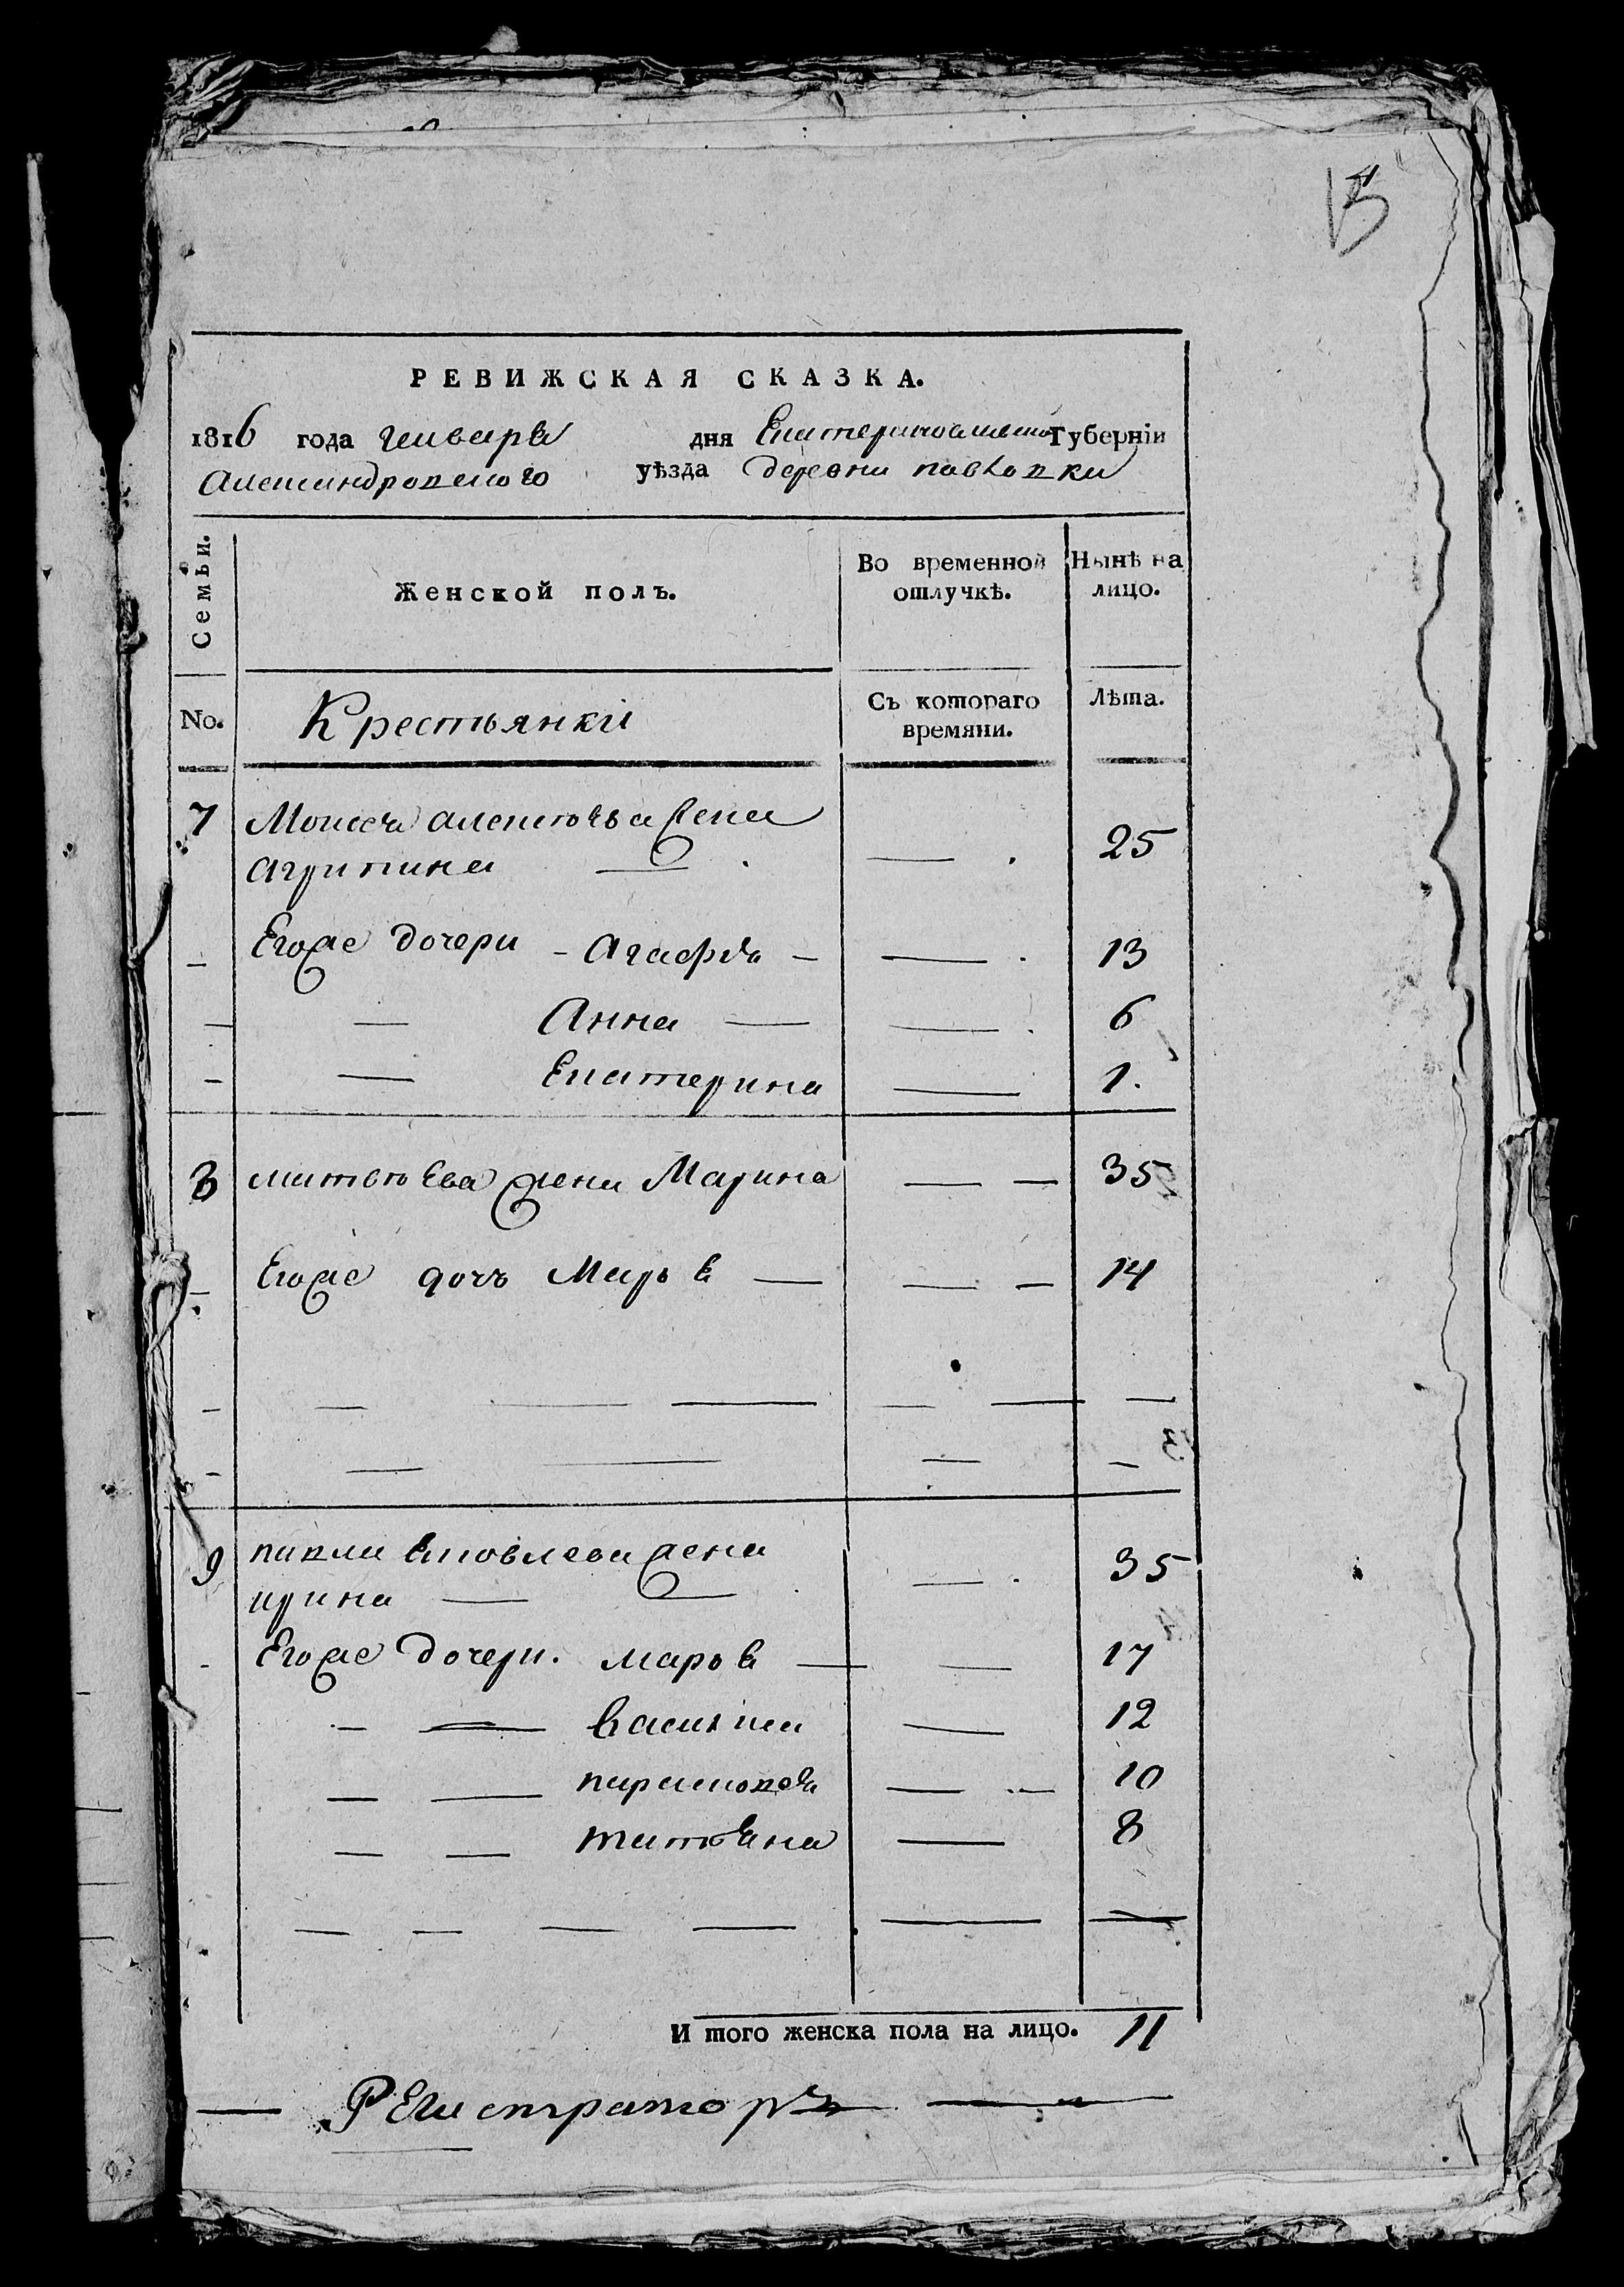 РЕВИЖСКАЯ СКАЗКА.
1816 года генваря дня Екатеринославской Губерніи
Александровского уѣзда деревни павловки
Семьи.
Женской полъ.
Во временной отлучкѣ.
Нынѣ на лицо.
No.
Крестьянкі
Съ котораго времяни.
Лѣта.
7 Моисея алексѣева жена
агрипина — — . 25
— Егоже дочери - Агафья — — . 13
— — Анна — — . 6
— — Екатерина — 1.
8 матвѣева жена Марина — — 35
— Егоже дочь Марья — — — 14
9 павла яковлева жена
ирина — — — . 35
- Егоже дочери. марья — — 17
— — василиса — 12
— — парасковья — — 10
— — татьяна — 8
И того женска пола на лицо. 11
— Регистраторъ —